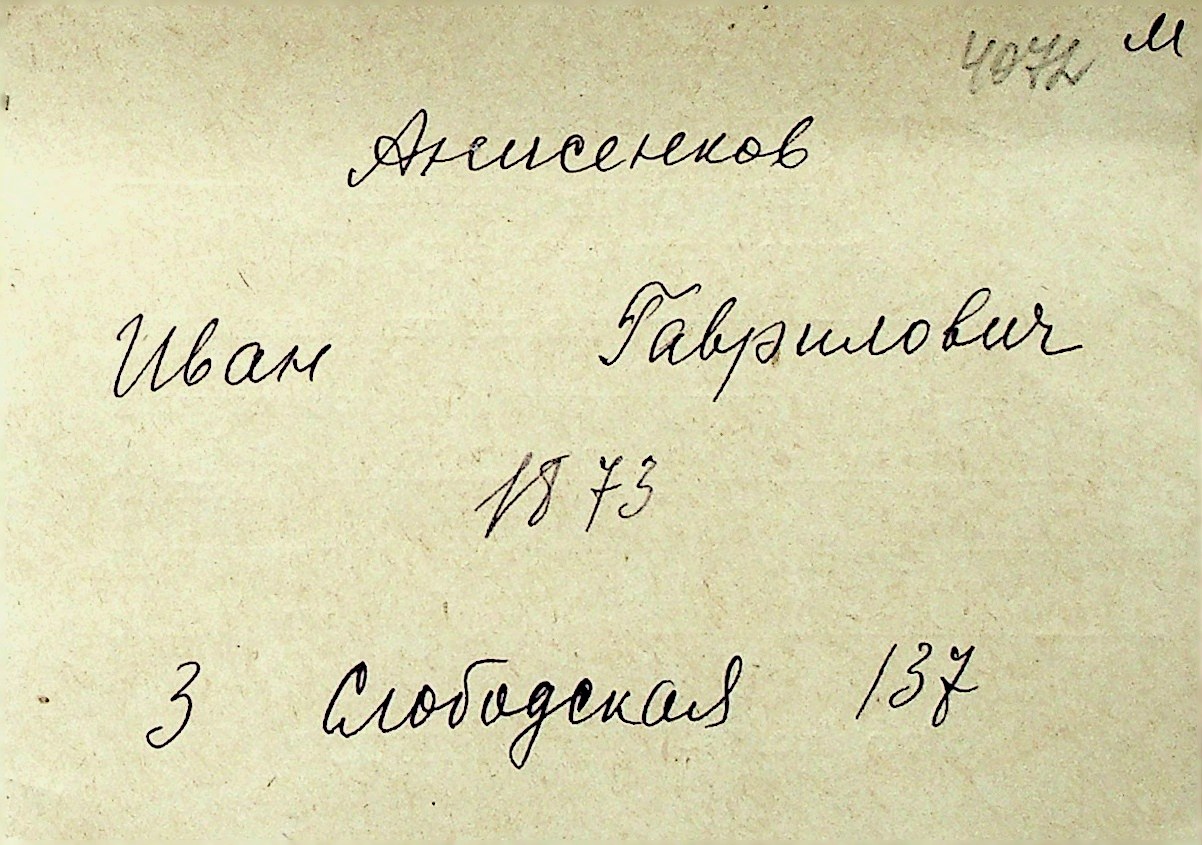 4072 М
Анисенков
Иван Гаврилович
1873
3 Слободская 137